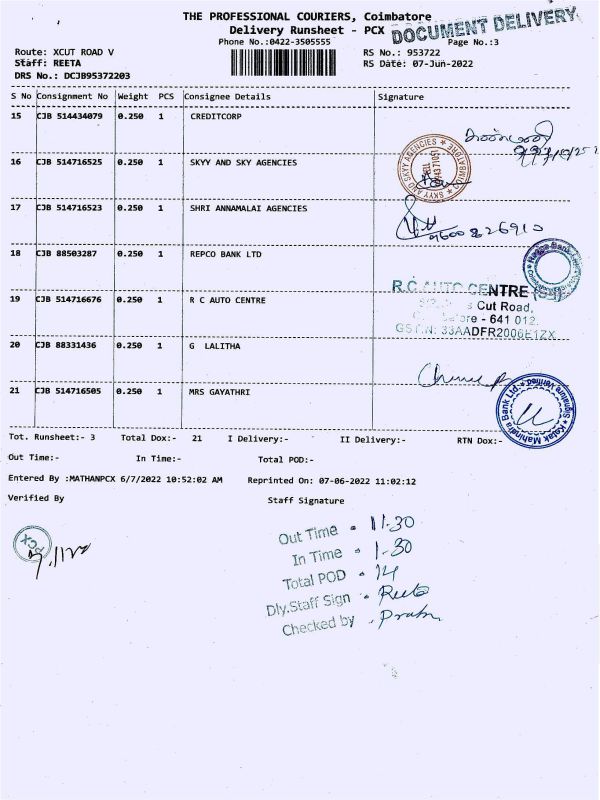 THE PROFESSIONAL COURIERS, Coimbatore
Delivery Runsheet - PCX
DOCUMENT DELIVERY
Phone No.:0422-3505555
Page No.:3
Route: XCUT ROAD V
RS No.: 953722
Staff: REETA
RS Date: 07-Jun-2022
DRS No.: DCJB95372203
S No Consignment No Weight PCS Consignee Details Signature
15 CJB 514434079 0.250 1 CREDITCORP
16 CJB 514716525 0.250 1 SKYY AND SKY AGENCIES
SKYY AND SKYY AGENCIES
17 CJB 514716523 0.250 1 SHRI ANNAMALAI AGENCIES
9600826910
18 CJB 88503287 0.250 1 REPCO BANK LTD
19 CJB 514716676 0.250 1 R C AUTO CENTRE
R.C AUTO CENTRE
Cut Road,
- 641 012.
GST.N: 33AADFR2006E1ZX
20 CJB 88331436 0.250 1 G LALITHA
21 CJB 514716505 0.250 1 MRS GAYATHRI
Kotak Mahindra Bank Ltd.
Signature Verified
Tot. Runsheet:- 3 Total Dox:- 21 I Delivery:- II Delivery:- RTN Dox:-
Out Time:- In Time:- Total POD:-
Entered By :MATHANPCX 6/7/2022 10:52:02 AM Reprinted On: 07-06-2022 11:02:12
Verified By Staff Signature
PCX
Out Time - 11.30
In Time - 1-30
Total POD - 14
Dly.Staff Sign - Reeta
Checked by